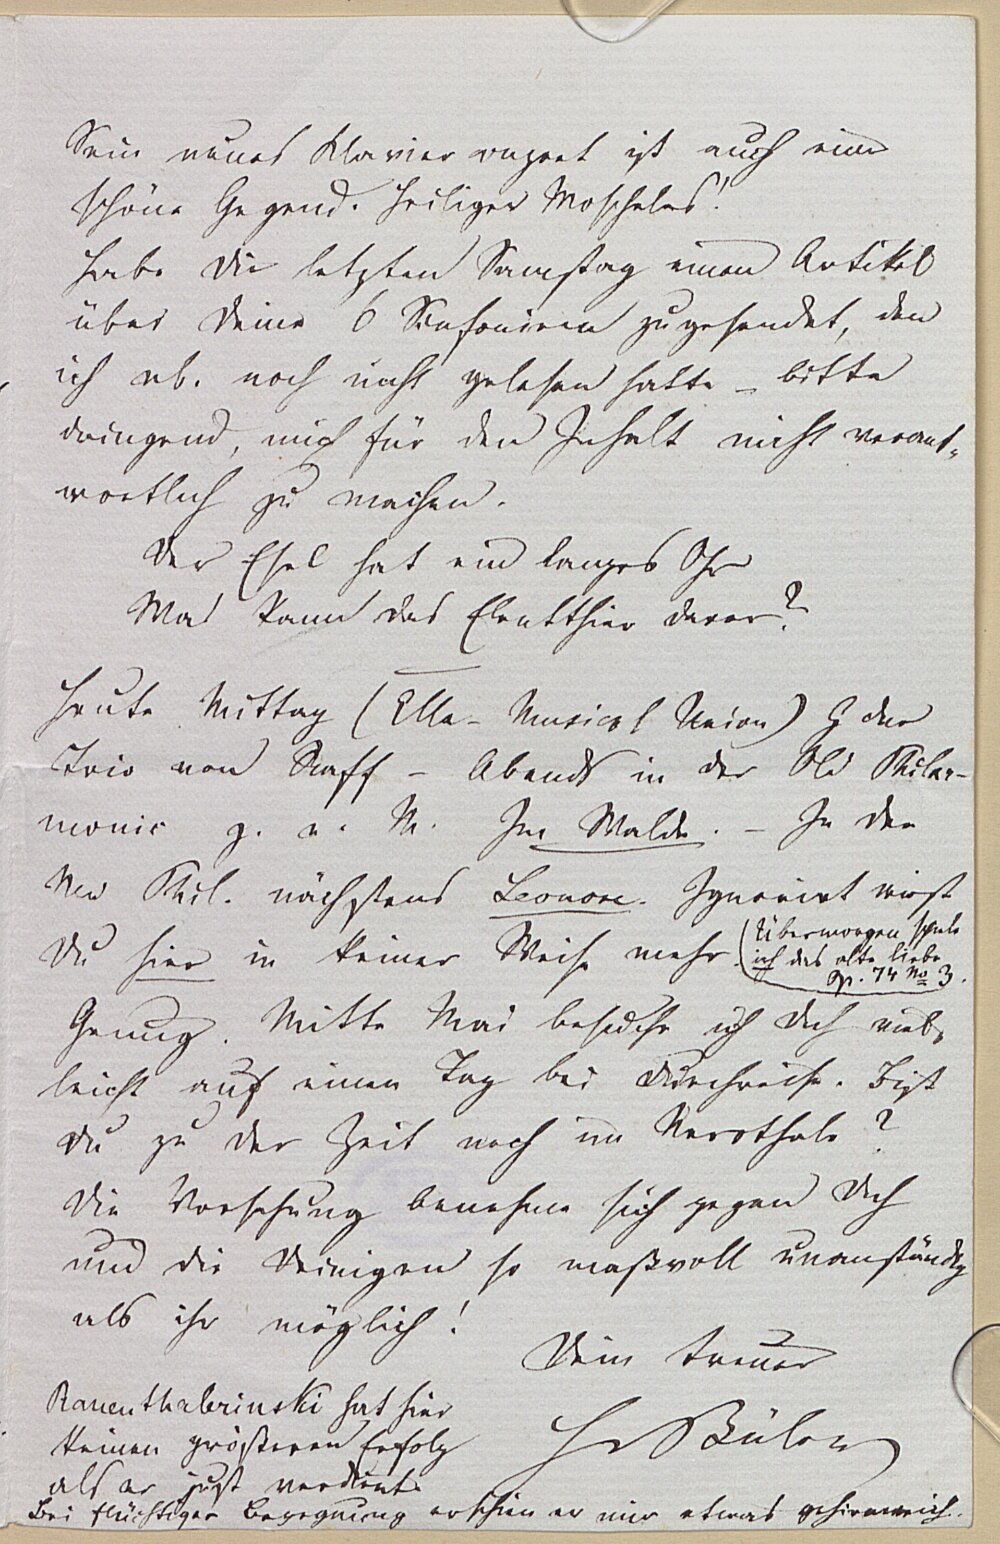 Sein neues Klavierconzert ist auch eine
schöne Gegend. Heiliger Moscheles!
Habe Dir letzten Samstag einen Artikel
über Deine 6 Sinfonieen zugesendet, den
ich noch nicht gelesen hatte – bitte
dringend, mich für den Inhalt nicht verant-
wortlich zu machen.
Der Esel hat ein langes Ohr
Was kann das Elentthier davor?
Heute Mittag (Ella – Musical Union) G dur
Trio von Raff – Abends in der Old Philar-
monic z. e. M. Im Walde. – In der
New Phil. nächstens Leonore. Ignorirt wirst
Du hier in keiner Weise mehr.
(Übermorgen spiele
ich das alte liebe
Op. 74 No 3.
Genug. Mitte Mai besuche ich Dich viel-
leicht auf einen Tag bei Durchreise. Bist
Du zu der Zeit noch im Nerothale?
Die Vorsehung benehme sich gegen Dich
und die Deinigen so maßvoll unanständig
als ihr möglich!
Dein treuer
HvBülow
hat hier
keinen größeren Erfolg
als er just verdient.
Bei flüchtiger Begegnung erschien er mir etwas gehirnweich.